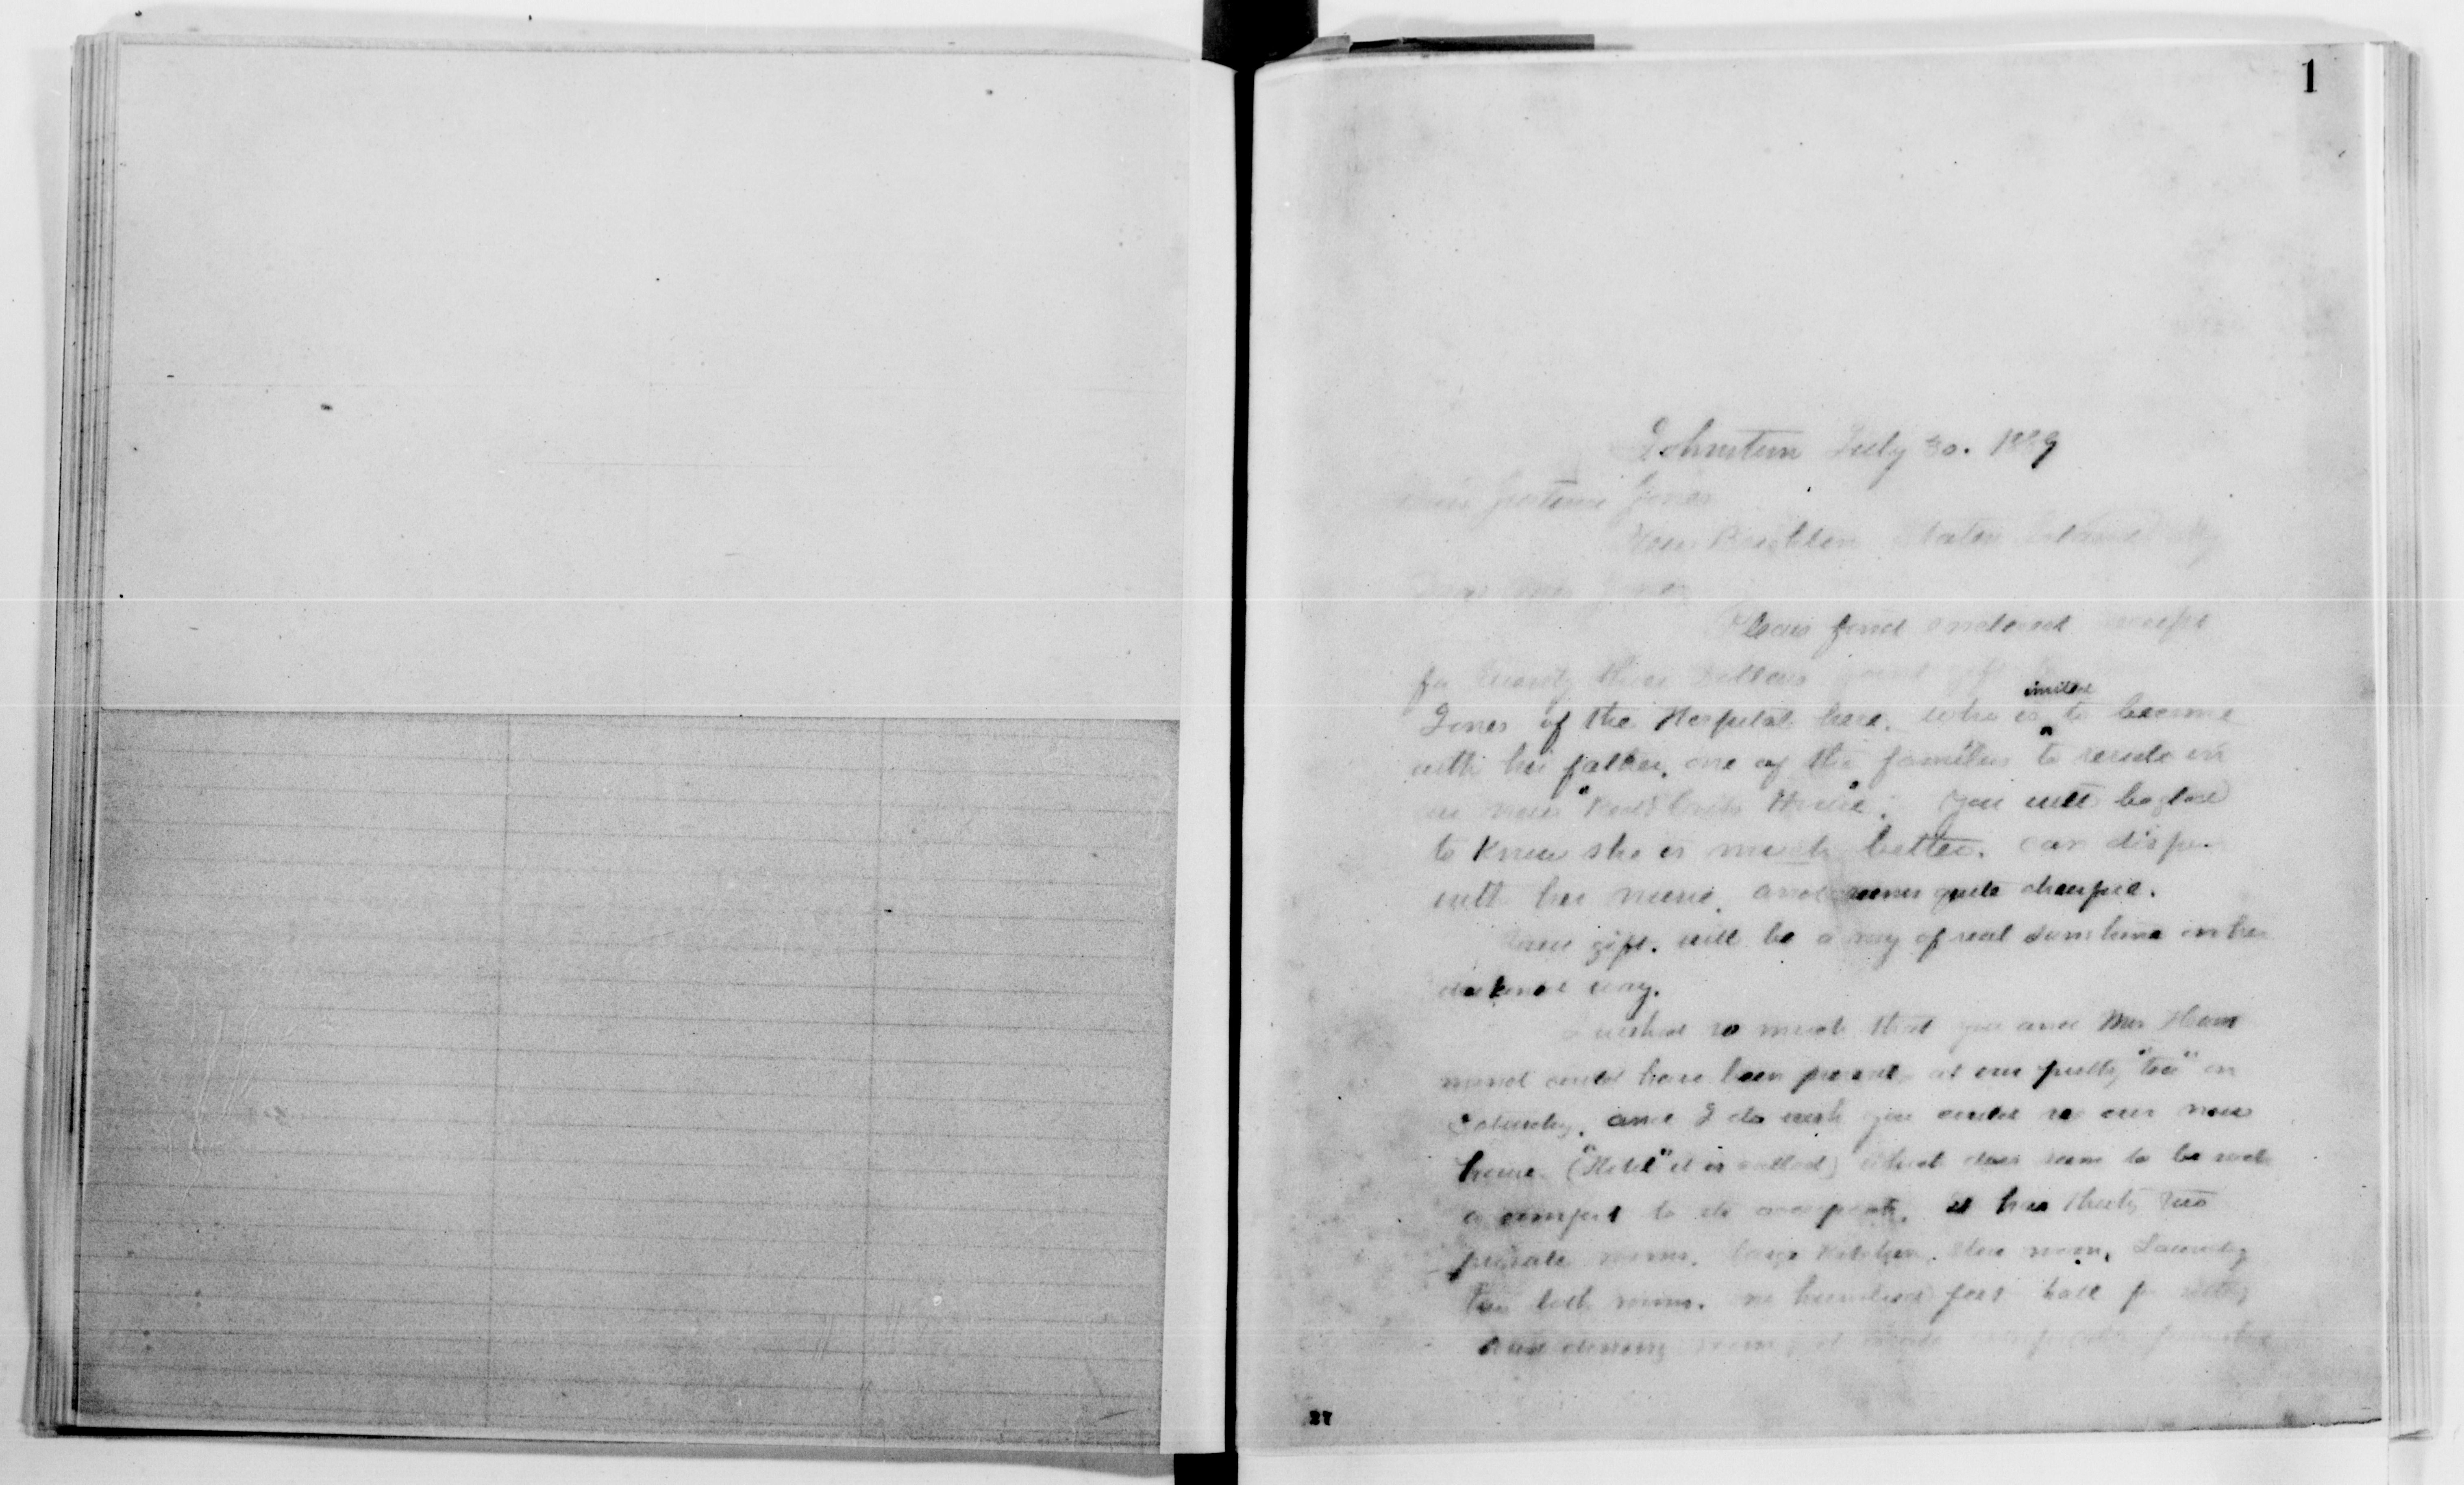 1
Johnstown July 30. 1889
Jones
New Brighton Staten Island
Dear Miss Jones
Please find enclosed receipt
for twenty three Dollars your gift
invited
Jones of the Hospital here. who is to become
with her father, one of the families to reside in
our new "Red Cross House". You will be glad
to know she is much better. can
with her nurse, and seems quite cheerful.
Your gift. will be a ray of real sunshine in her
darkened way.
I wished so much that you and Mrs Ham
mond could have been present at our pretty "tea" on
Saturday, and I do wish you could see our new
house ("Hotel" it is called) which does seem to be such
a comfort to its occupants. it has thirty two
private rooms. large kitchen. store room, Laundry
bath rooms. one hundred feet hall for sitting
and dining room, it
27